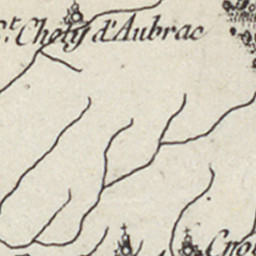 St. Chely d'Aubrac
Cro